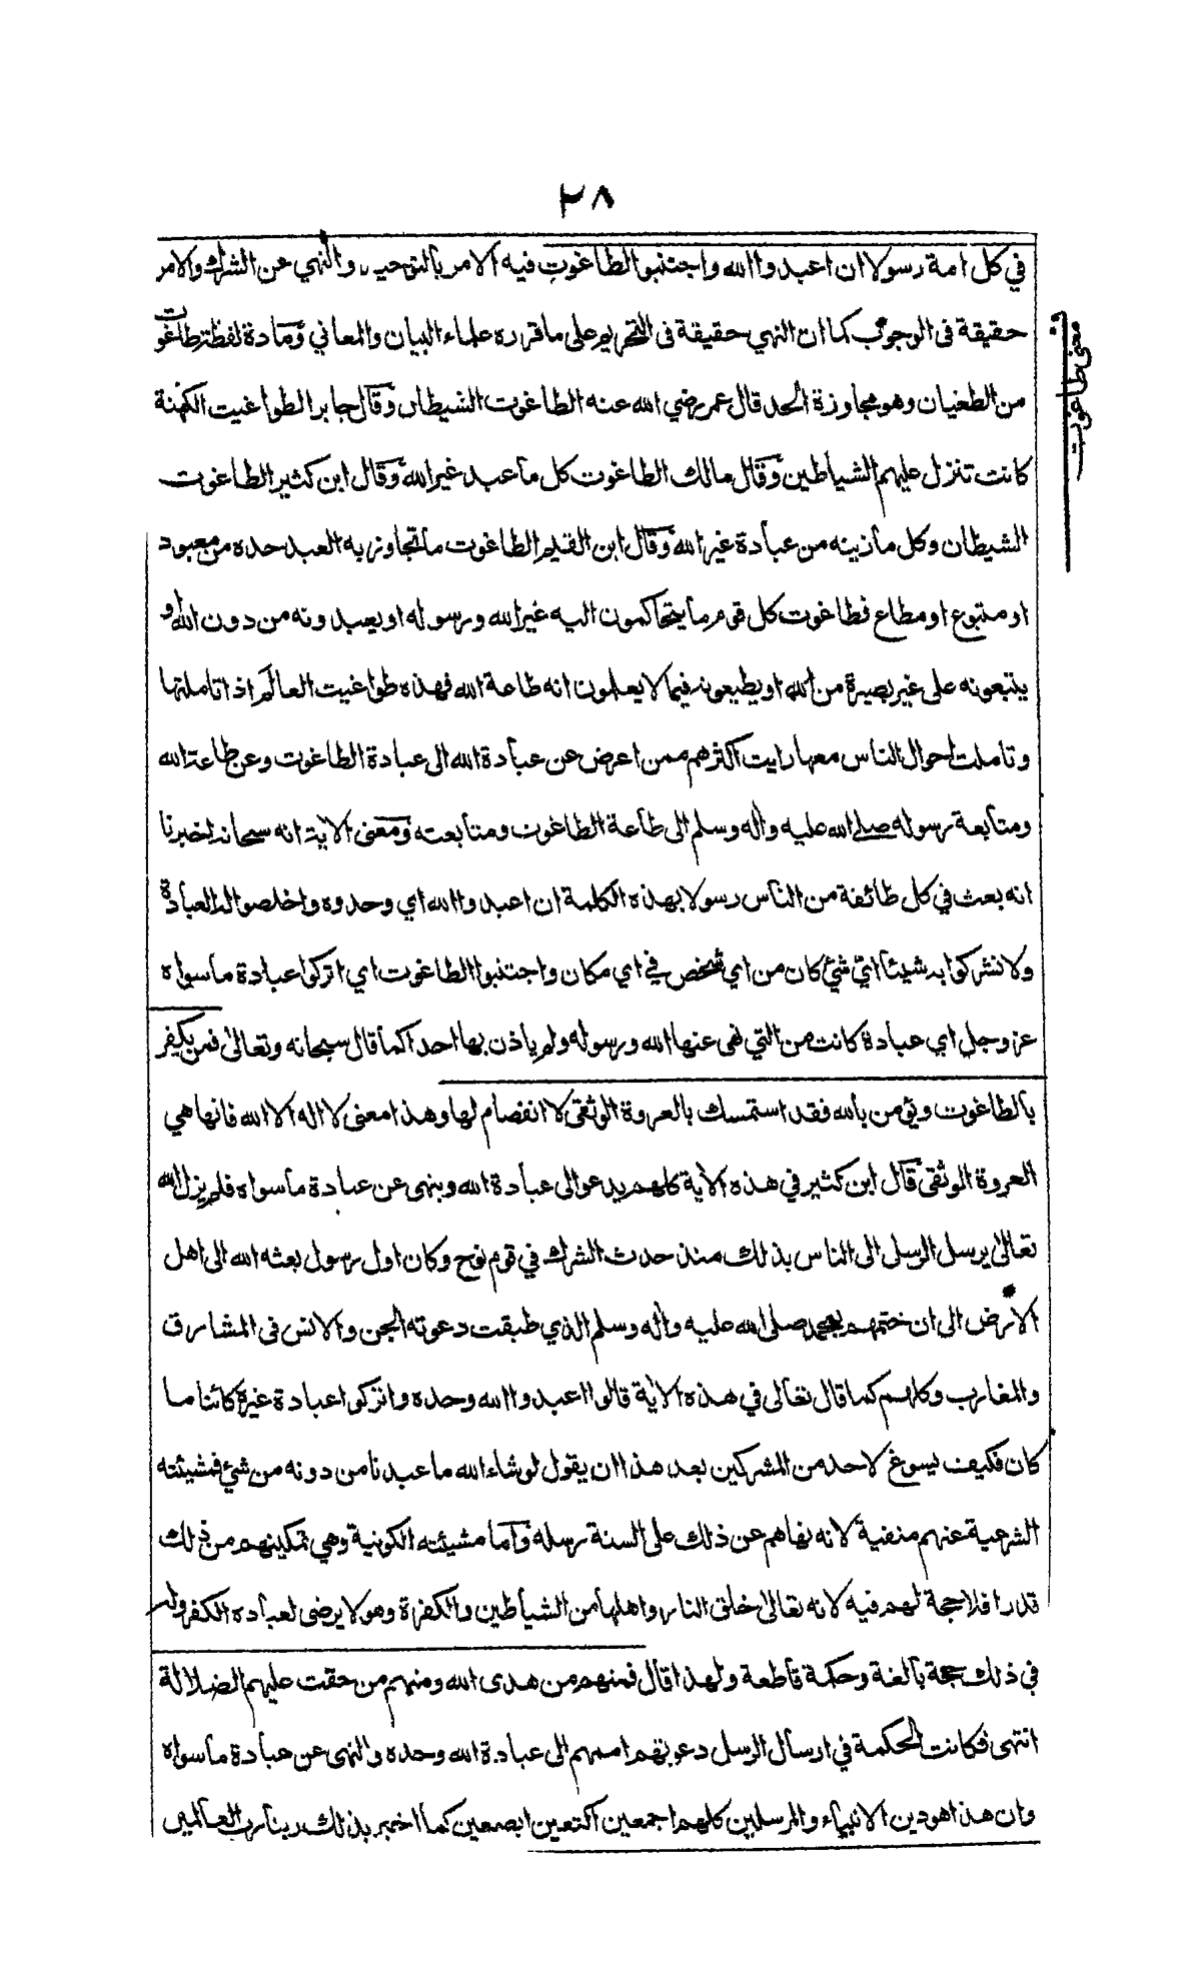 ٢٨
في كل امة رسولا ان اعبدوا الله واجتنبوا الطاغوت فيه الامر بالتوحيد والنهي عن الشرك والامر
حقيقة فى الوجوب كما ان النهي حقيقة فى التحريم على ما قرره علماء البيان والمعاني ومادة لفظة طاغوت
من الطغيان وهو مجاوزة الحد قال عمر رضي الله عنه الطاغوت الشيطان وقال جابر الطواغيت الكهنة
كانت تنزل عليهم الشياطين وقال مالك الطاغوت كل ما عبد غير الله وقال ابن كثير الطاغوت
الشيطان وكل ما زينه من عبادة غير الله وقال ابن القيم الطاغوت ما تجاوز به العبد حده من معبود
او متبوع او مطاع فطاغوت كل قوم ما يتحاكمون اليه غير الله ورسوله او يعبدونه من دون الله و
يتبعونه على غير بصيرة من الله او يطيعونه فيما لا يعلمون انه طاعة الله فهذه طواغيت العالم اذا تاملتها
وتاملت احوال الناس معها رايت اكثرهم ممن اعرض عن عبادة الله الى عبادة الطاغوت وعن طاعة الله
ومتابعة رسوله صلے الله عليه واله وسلم الى طاعة الطاغوت ومتابعته ومعنى الاية انه سبحانه اخبرنا
انه بعث في كل طائفة من الناس رسولا بهذه الكلمة ان اعبدوا الله اي وحدوه واخلصوا له العبادة
ولا تشركوا به شيئا اي شئ كان من اي شخص في اي مكان واجتنبوا الطاغوت اي اتركوا عبادة ما سواه
عز وجل اي عبادة كانت من التي نهى عنها الله ورسوله ولم ياذن بها احدا كما قال سبحانه وتعالى فمن يكفر
بالطاغوت ويؤمن بالله فقد استمسك بالعروة الوثقى لا انفصام لها وهذا معنى لا اله الا الله فانها هي
العروة الوثقى قال ابن كثير في هذه الاية كلهم يدعو الى عبادة الله وينهى عن عبادة ما سواه فلم يزل الله
تعالى يرسل الرسل الى الناس بذلك منذ حدث الشرك في قوم نوح وكان اول رسول بعثه الله الى اهل
الارض الى ان ختمهم بمحمد صلى الله عليه واله وسلم الذي طبقت دعوته الجن والانس فى المشارق
والمغارب وكلهم كما قال تعالى في هذه الاية قالوا اعبدوا الله وحده واتركوا عبادة غيره كائنا ما
كان فكيف يسوغ لاحد من المشركين بعد هذا ان يقول لو شاء الله ما عبدنا من دونه من شئ فمشيئته
الشرعية عنهم منفية لانه نهاهم عن ذلك على السنة رسله واما مشيئته الكونية وهي تمكينهم من ذلك
قدرا فلا حجة لهم فيه لانه تعالى خلق النار واهلها من الشياطين والكفرة وهو لا يرضى لعباده الكفر وله
في ذلك حجة بالغة وحكمة قاطعة ولهذا قال فمنهم من هدى الله ومنهم من حقت عليهم الضلالة
انتهى فكانت الحكمة في ارسال الرسل دعوتهم اممهم الى عبادة الله وحده والنهى عن عبادة ما سواه
وان هذا هو دين الانبياء والمرسلين كلهم اجمعين اكتعين ابصعين كما اخبر بذلك ربنا رب العالمين
معنى طاغوت